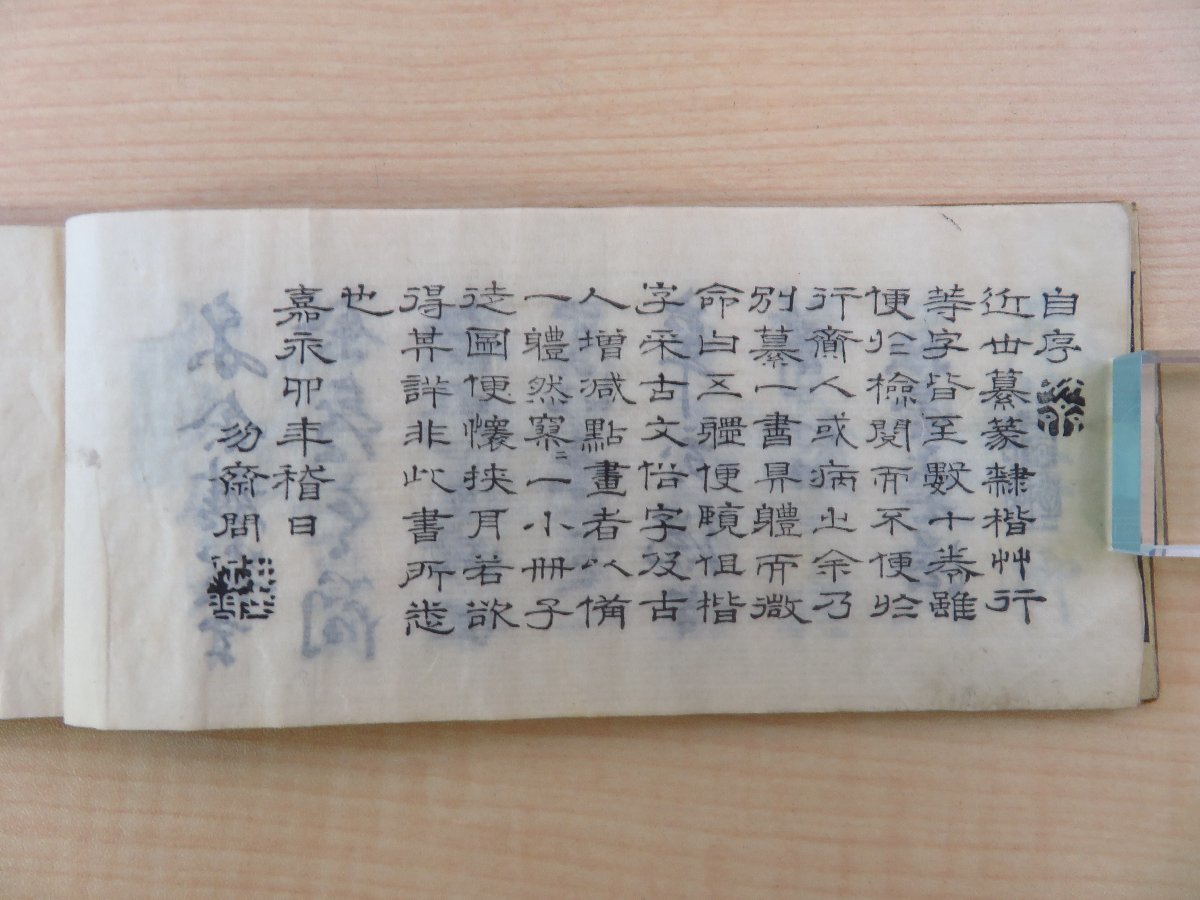 自序
近世纂篆隷楷艸行
等字皆至數十巻雖
便於檢閲而不便於
行齎人或病之余乃
別纂一書昇體而徴
命曰五體便覽但楷
字采古文俗字及古
人増減點畫者以備
一體然寥〻一小冊子
徒圖便懷挾月若欲
得其詳非此書所悉
也
嘉永卯年稽日
㓜齋問